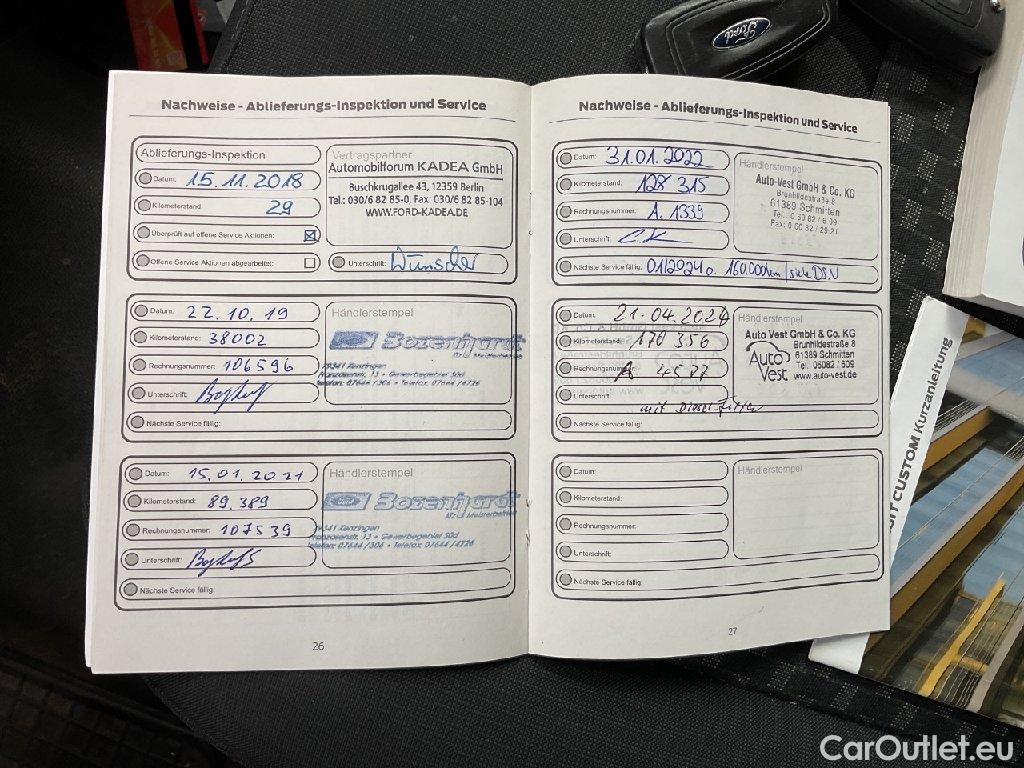 Ford
Nachweise - Ablieferungs-Inspektion und Service
Ablieferungs-Inspektion
Datum: 15.11.2018
Kilometerstand: 29
Überprüft auf offene Service Aktionen:
Offene Service Aktionen abgearbeitet:
Vertragspartner
Automobilforum KADEA GmbH
Buschkrugallee 43, 12359 Berlin
Tel.: 030/6 82 85-0, Fax: 030/6 82 85-104
WWW.FORD-KADEA.DE
Unterschrift: Wunscher
Datum: 22.10.19
Kilometerstand: 38002
Rechnungsnummer: 106596
Unterschrift:
Nächste Service fällig:
Händlerstempel
Bozenhardt
Kfz Meisterbetrieb
79341 Kenzingen
Franzosenstr. 13 • Gewerbegebiet Süd
Telefon: 07644 / 306 • Telefax: 07644 / 4726
Datum: 15.01.2021
Kilometerstand: 89.389
Rechnungsnummer: 107539
Unterschrift:
Nächste Service fällig:
Händlerstempel
Ford Bozenhardt
Kfz Meisterbetrieb
79341 Kenzingen
Franzosenstr. 13 • Gewerbegebiet Süd
Telefon: 07644 / 306 • Telefax: 07644 / 4726
26
Nachweise - Ablieferungs-Inspektion und Service
Datum: 31.01.2022
Kilometerstand: 128 315
Rechnungsnummer: A. 1339
Unterschrift:
Nächste Service fällig: 01/2024 o. 160.000km / siehe DSN
Händlerstempel
Auto-Vest GmbH & Co. KG
Brunhildestraße 8
61389 Schmitten
Datum: 21.04.2024
Kilometerstand: 170 356
Rechnungsnummer: A 4577
Unterschrift:
mit Dieselfilter
Nächste Service fällig:
Händlerstempel
Auto Vest GmbH & Co. KG
Brunhildestraße 8
61389 Schmitten
Tel.: 06082 / 609
www.auto-vest.de
Auto
Vest
Datum:
Kilometerstand:
Rechnungsnummer:
Unterschrift:
Nächste Service fällig:
Händlerstempel
27
CUSTOM Kurzanleitung
CarOutlet.eu